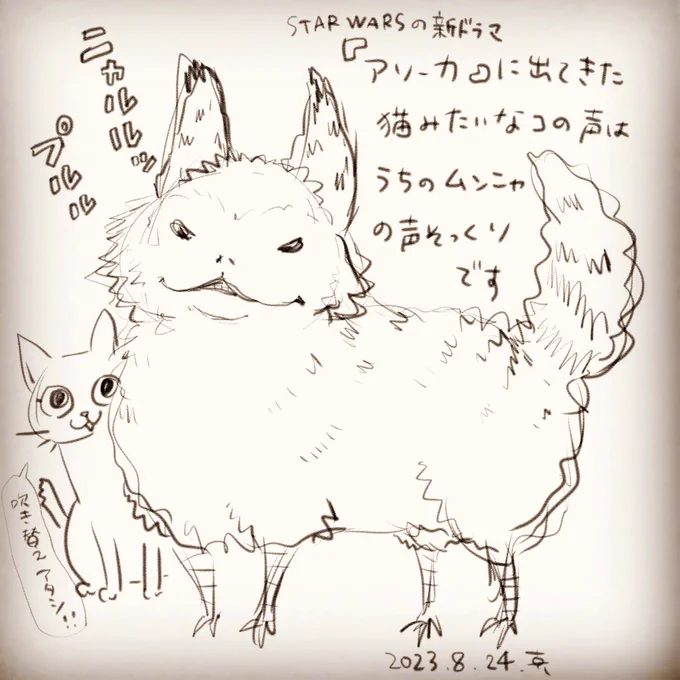 STAR WARSの新ドラマ
『アソーカ』に出てきた
猫みたいなコの声は
うちのムンニャ
の声そっくり
です
ニャルルッ
プルル
吹き替え
アタシ!!
2023.8.24.